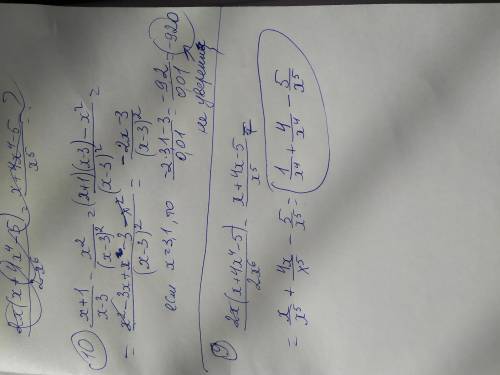 2x(x+4x⁴-5) / 2x⁶ = x+4x⁴-5 / x⁵
10) x+1 / x-3 - x² / (x-3)² = (x+1)(x-3) - x² / (x-3)² =
= x²-3x+x-3-x² / (x-3)² = -2x-3 / (x-3)²
если x=3,1, то -2·3,1-3 / 0,01 = -9,2 / 0,01 = -920
не уверен
9) 2x(x+4x⁴-5) / 2x⁶ = x+4x-5 / x⁵ =
= x / x⁵ + 4x / x⁵ - 5 / x⁵ = 1 / x⁴ + 4 / x⁴ - 5 / x⁵